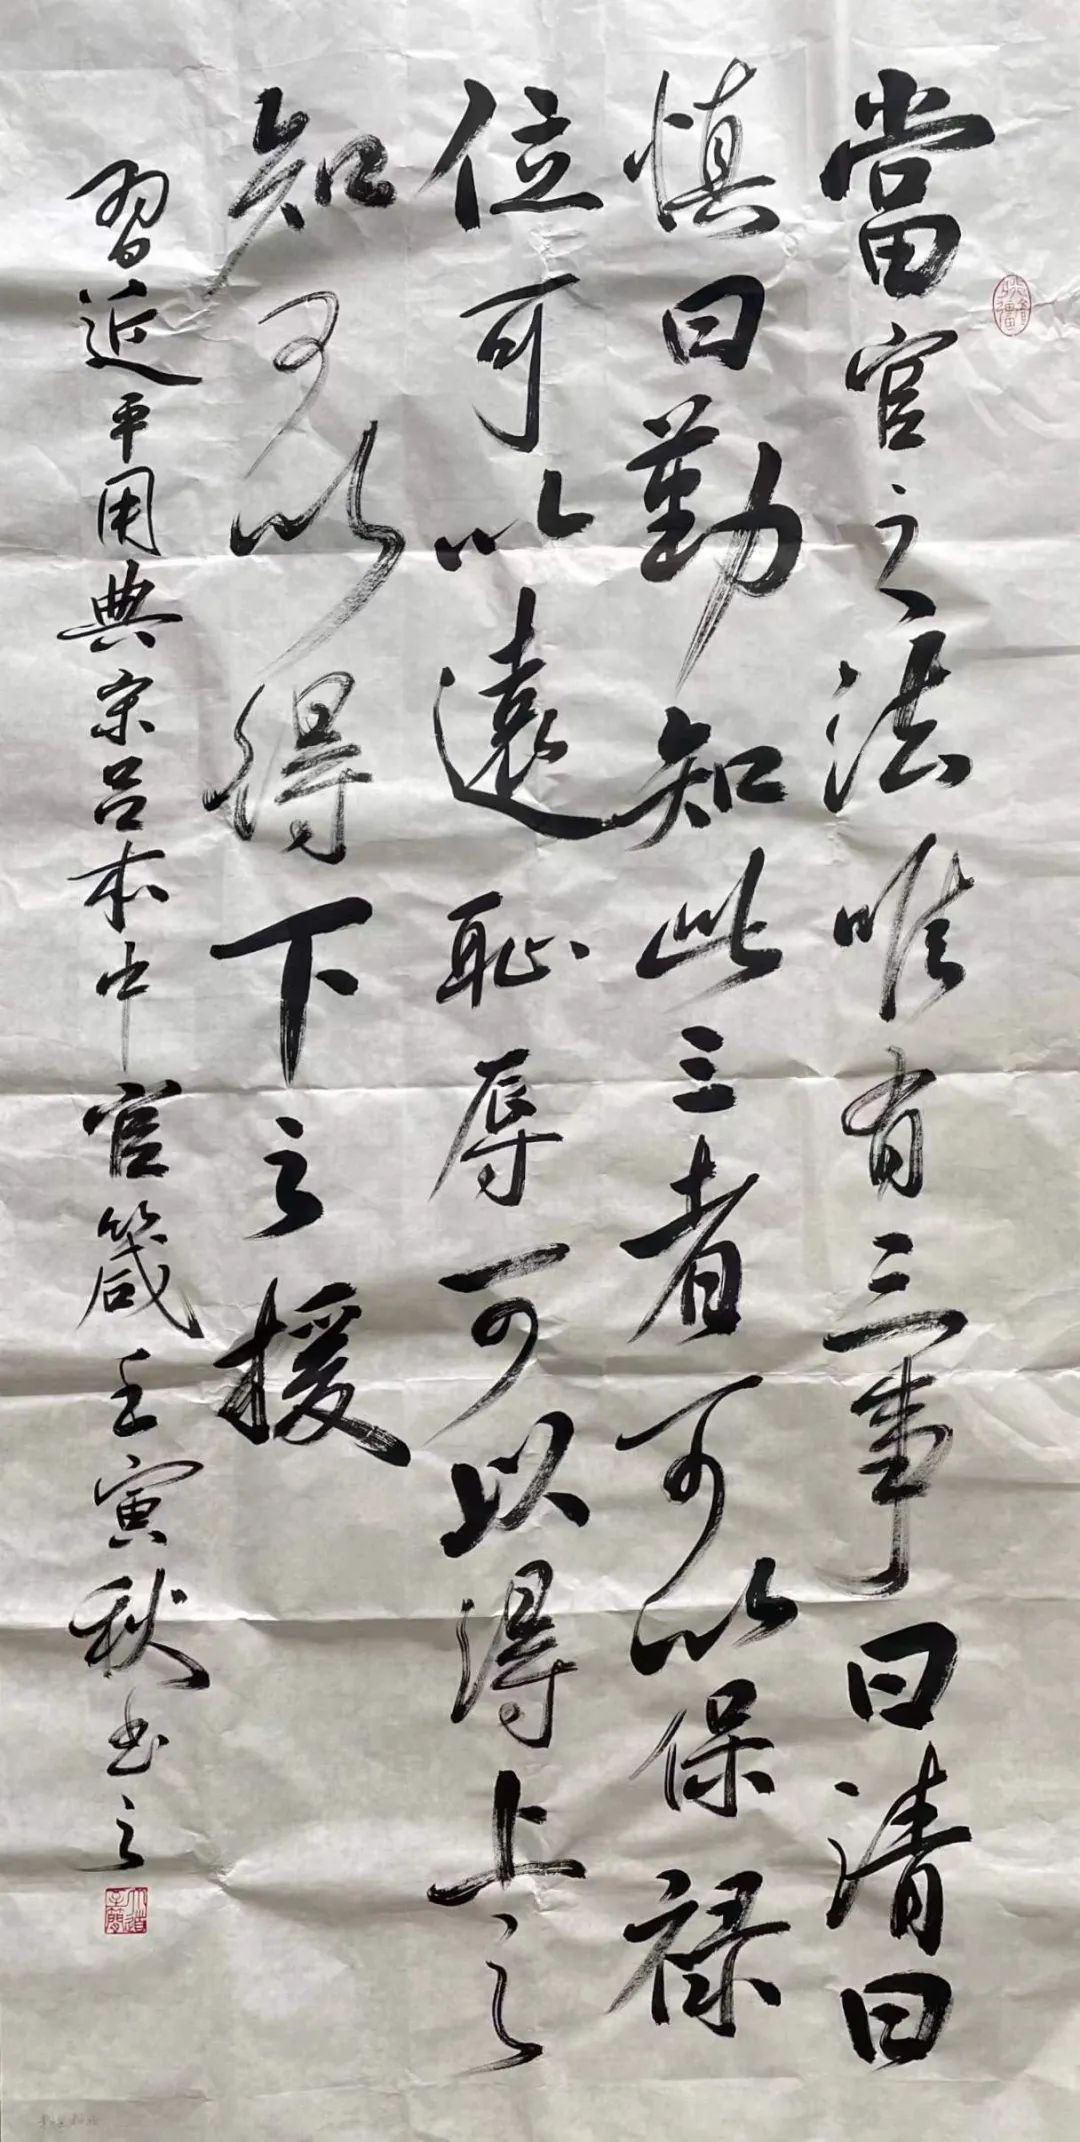 當官之法唯有三事曰清曰
慎曰勤知此三者可以保禄
位可以遠恥辱可以得上之
知可以得下之援
習近平用典宋吕本中官箴壬寅秋书之
大道至簡